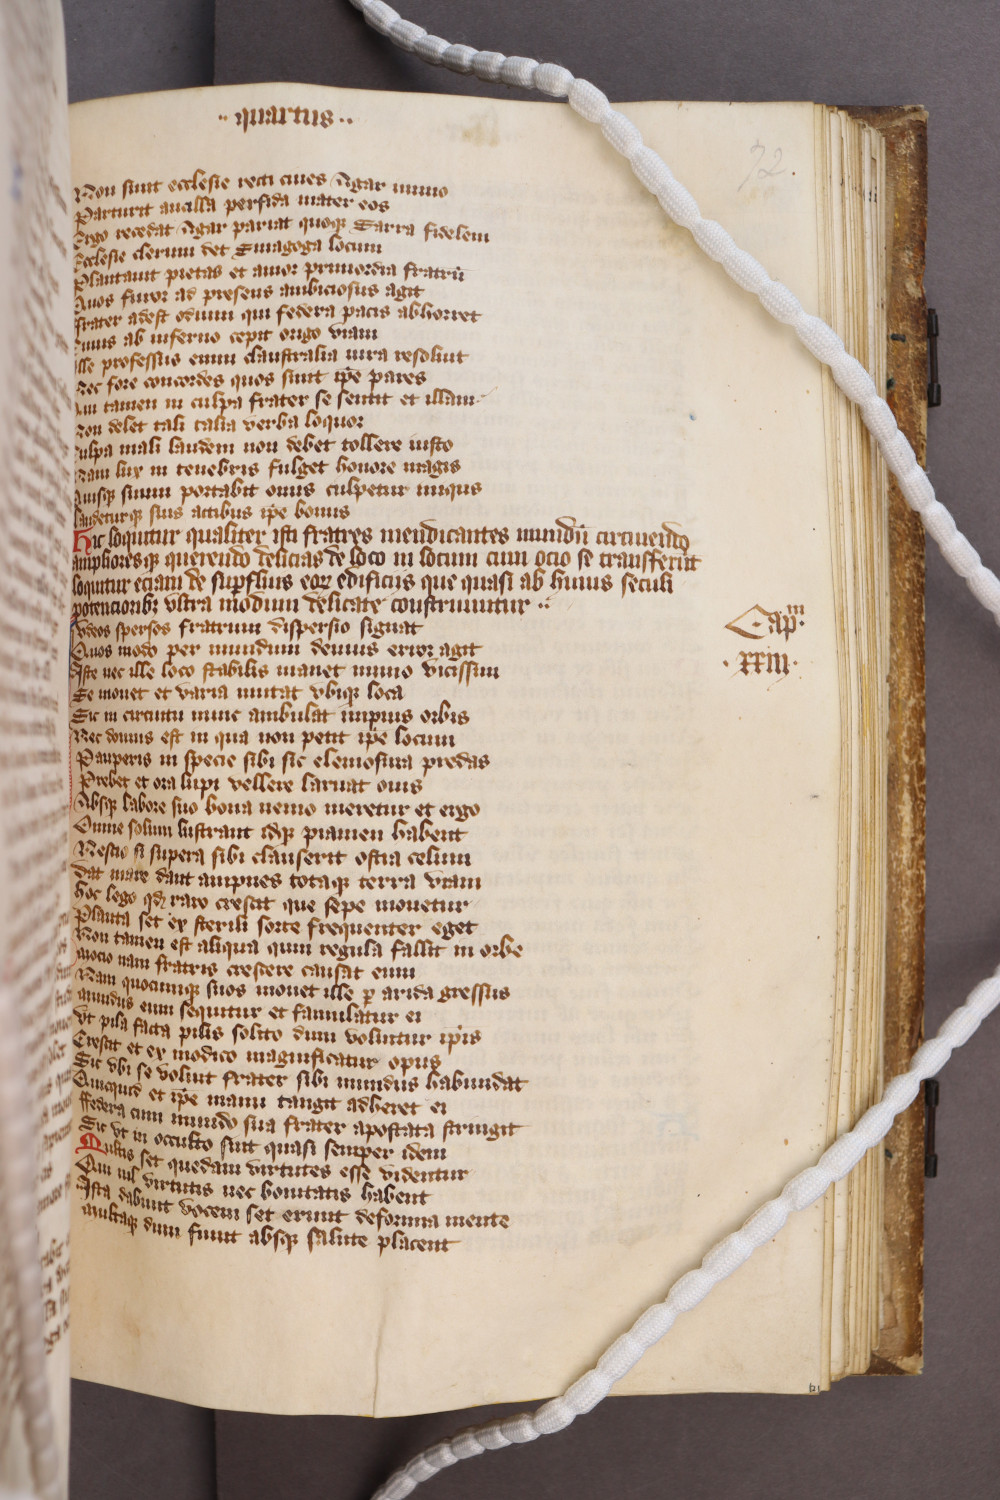 ·· quartus ··
72.
Non sunt ecclesie recti ciues Agar immo
Parturit ancilla perfida mater eos
Ergo recedat Agar pariat quoqꝫ Sarra fidelem
Ecclesie clerum det Sinagoga locum
Plantauit pietas et amor primordia fratrū
Quos furor ad presens ambiciosus agit
frater adest odium qui federa pacis abhorret
Cuius ab inferno cepit origo viam
Ille professus enim claustralia iura resoluit
Nec fore concordes quos sinit ip̄e pares
Qui tamen in culpa frater se sentit et illam
Non delet tali talia verba loquor
Culpa mali laudem non debet tollere iusto
Nam lux in tenebris fulget honore magis
Quisqꝫ suum portabit onus culpetur iniqus
laudeturqꝫ suis actibus ip̄e bonus
Hic loquitur qualiter isti fratres mendicantes mundū circuiendo
amplioresqꝫ querendo delicias de loco in locum cum ocio se transferūt
loquitur eciam de suꝑfluis eoꝝ edificiis que quasi ab huius seculi
potencioribꝫ vltra modum delicate construuntur ··
Capᵐ.
·xxiij·
Iudeos spersos fratrum dispersio signat
Quos modo per mundum deuius error agit
Iste nec ille loco stabilis manet immo vicissim
Se mouet et varia mutat vbiqꝫ loca
Sic in circuitu nunc ambulat impius orbis
Nec domus est in qua non petit ip̄e locum
Pauperis in specie sibi sic elemosina predas
Prebet et ora lupi vellere laruat ouis
Absqꝫ labore suo bona nemo meretur et ergo
Omne solum lustrant idqꝫ piamen habent
Nescio si supera sibi clauserit ostia celum
dat mare dant ampnes totaqꝫ terra viam
hoc lego qd̛ raro crescit que sepe mouetur
Planta set ex sterili sorte frequenter eget
Non tamen est aliqua quin regula fallit in orbe
mocio nam fratris crescere causat eum
Nam quocumqꝫ suos mouet ille ꝑ arida gressus
mundus eum sequitur et famulatur ei
vt pila facta pilis solito dum voluitur ip̄is
Crescit et ex modico magnificatur opus
Sic vbi se voluit frater sibi mundus habundat
Quicquid et ip̄e manu tangit adheret ei
ffedera cum mundo sua frater apostata stringit
Sic vt in occulto sint quasi semper idem
Multis set quedam virtutes esse videntur
Qui nil virtutis nec bonitatis habent
Ista dabunt vocem set erunt deforma mente
multaqꝫ dum fiunt absqꝫ salute placent